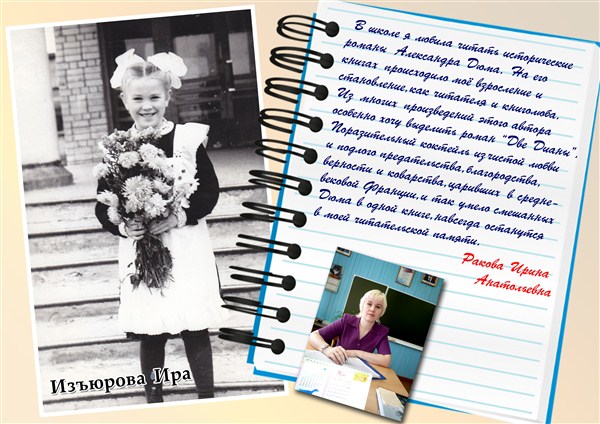 В школе я любила читать исторические
романы Александра Дюма. На его
книгах происходило моё взросление и
становление, как читателя и книголюба.
Из многих произведений этого автора
особенно хочу выделить роман "Две Дианы".
Поразительный коктейль из чистой любви
и подлого предательства, благородства,
верности и коварства, царивших в средне-
вековой Франции, и так умело смешанных
Дюма в одной книге, навсегда останутся
в моей читательской памяти.
Ракова Ирина
Анатольевна
Изъюрова Ира